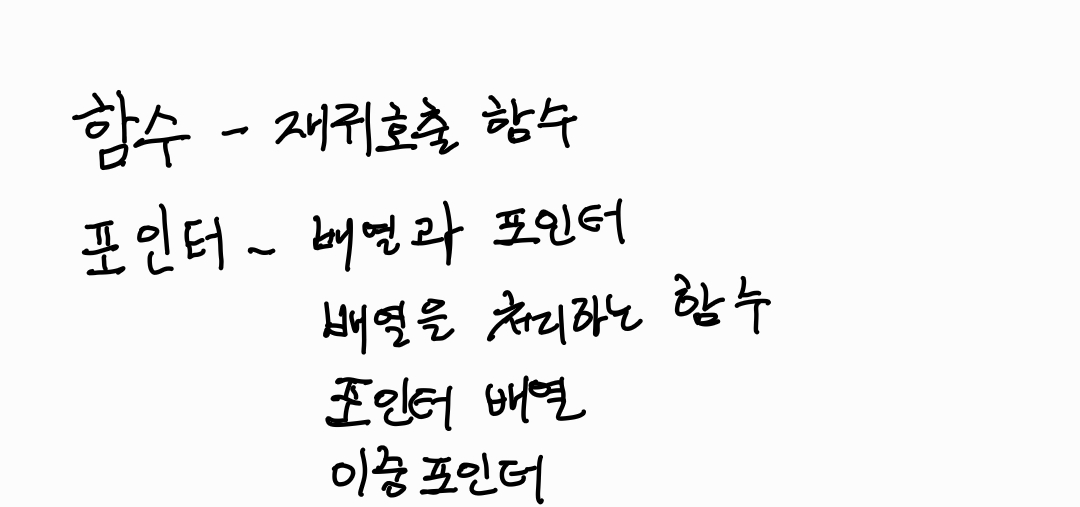 함수 - 재귀호출 함수
포인터 ~ 배열과 포인터
배열을 처리하는 함수
포인터 배열
이중포인터